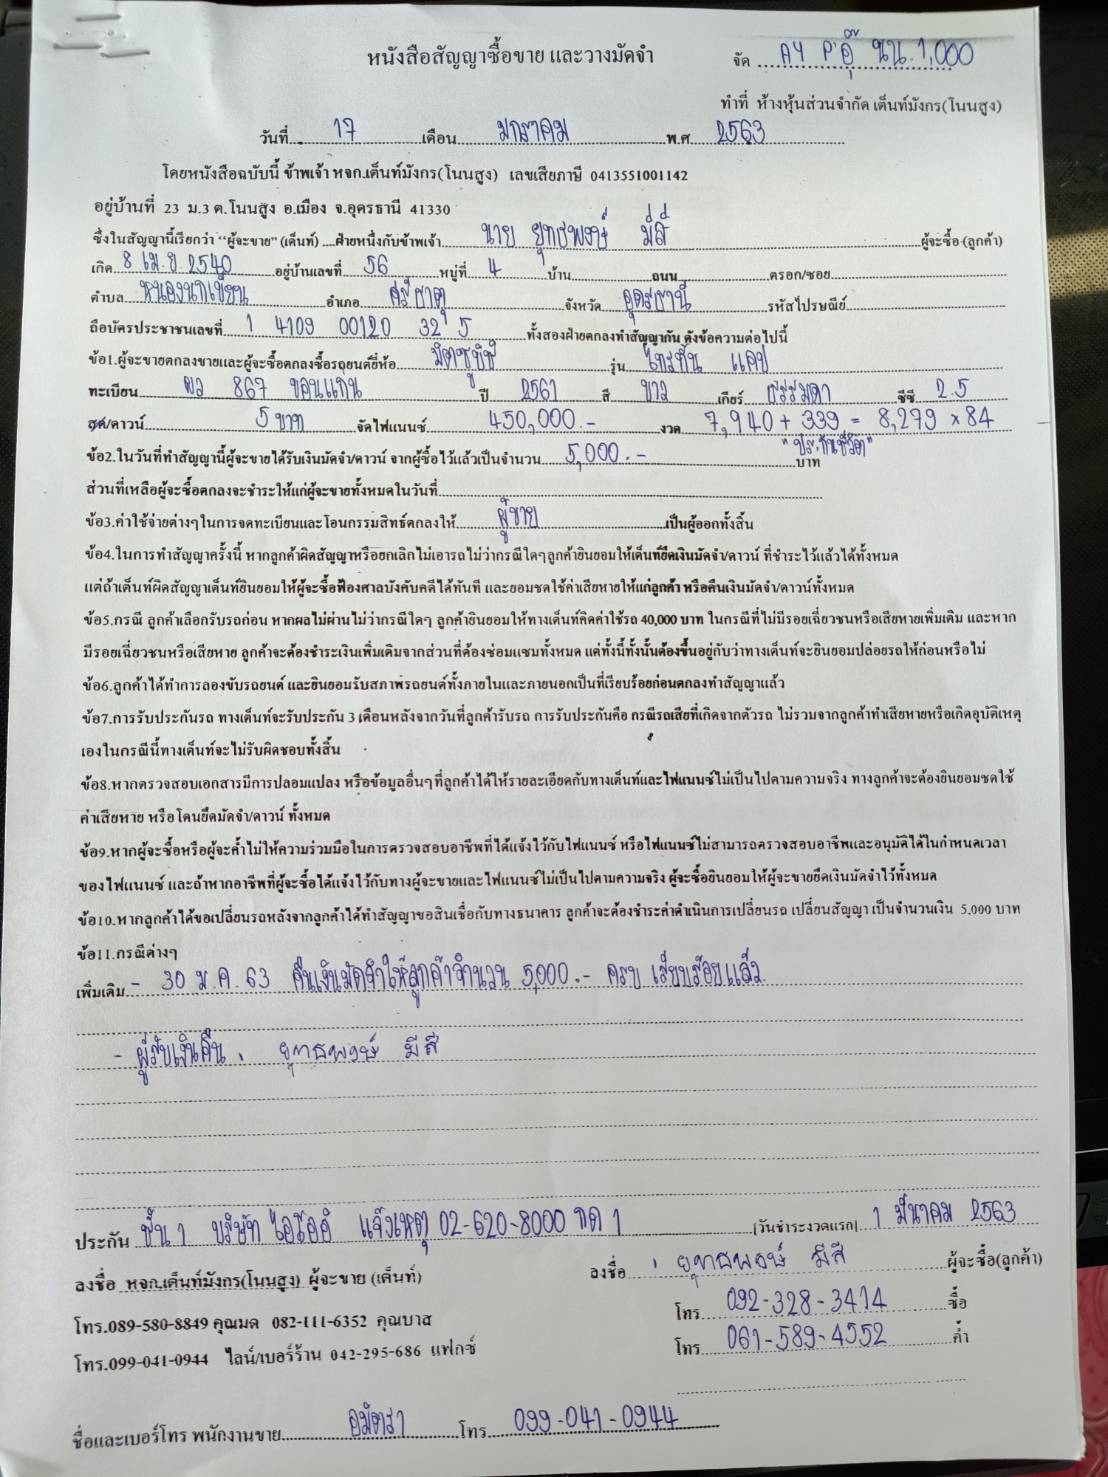 หนังสือสัญญาซื้อขาย และวางมัดจำ
จัด AY P'อุ๊ นน.1,000
ทำที่ ห้างหุ้นส่วนจำกัด เต็นท์มังกร(โนนสูง)
วันที่ 17 เดือน มกราคม พ.ศ. 2563
โดยหนังสือฉบับนี้ ข้าพเจ้า หจก.เต็นท์มังกร(โนนสูง) เลขเสียภาษี 0413551001142
อยู่บ้านที่ 23 ม.3 ต.โนนสูง อ.เมือง จ.อุดรธานี 41330
ซึ่งในสัญญานี้เรียกว่า "ผู้จะขาย" (เต็นท์) ....ฝ่ายหนึ่งกับข้าพเจ้า นาย ยุทธพงษ์ มีสี ผู้จะซื้อ (ลูกค้า)
เกิด 8 เม.ย. 2540 อยู่บ้านเลขที่ 56 หมู่ที่ 4 บ้าน ถนน ตรอก/ซอย
ตำบล หนองนกเขียน อำเภอ ศรีธาตุ จังหวัด อุดรธานี รหัสไปรษณีย์
ถือบัตรประชาชนเลขที่ 1 4109 00120 32 5 ทั้งสองฝ่ายตกลงทำสัญญากัน ดังข้อความต่อไปนี้
ข้อ1.ผู้จะขายตกลงขายและผู้จะซื้อตกลงซื้อรถยนต์ยี่ห้อ มิตซูบิชิ รุ่น ไทรทัน แคป
ทะเบียน ผว 867 ขอนแก่น ปี 2561 สี ขาว เกียร์ ธรรมดา ซีซี 2.5
สด/ดาวน์ 5 บาท จัดไฟแนนซ์ 450,000.- งวด 7,940 + 339 = 8,279 x 84
"ประกันชีวิต"
ข้อ2.ในวันที่ทำสัญญานี้ผู้จะขายได้รับเงินมัดจำ/ดาวน์ จากผู้ซื้อไว้แล้วเป็นจำนวน 5,000.- บาท
ส่วนที่เหลือผู้จะซื้อตกลงจะชำระให้แก่ผู้จะขายทั้งหมดในวันที่
ข้อ3.ค่าใช้จ่ายต่างๆในการจดทะเบียนและโอนกรรมสิทธิ์ตกลงให้ ผู้ขาย เป็นผู้ออกทั้งสิ้น
ข้อ4.ในการทำสัญญาครั้งนี้ หากลูกค้าผิดสัญญาหรือยกเลิกไม่เอารถ ไม่ว่ากรณีใดๆลูกค้ายินยอมให้เต็นท์ยึดเงินมัดจำ/ดาวน์ ที่ชำระไว้แล้วได้ทั้งหมด
แต่ถ้าเต็นท์ผิดสัญญาเต็นท์ยินยอมให้ผู้จะซื้อฟ้องศาลบังคับคดีได้ทันที และยอมชดใช้ค่าเสียหายให้แก่ลูกค้า หรือคืนเงินมัดจำ/ดาวน์ทั้งหมด
ข้อ5.กรณี ลูกค้าเลือกรับรถก่อน หากผลไม่ผ่านไม่ว่ากรณีใดๆ ลูกค้ายินยอมให้ทางเต็นท์คิดค่าใช้รถ 40,000 บาท ในกรณีที่ไม่มีรอยเฉี่ยวชนหรือเสียหายเพิ่มเติม และหาก
มีรอยเฉี่ยวชนหรือเสียหาย ลูกค้าจะต้องชำระเงินเพิ่มเติมจากส่วนที่ต้องซ่อมแซมทั้งหมด แต่ทั้งนี้ทั้งนั้นต้องขึ้นอยู่กับว่าทางเต็นท์จะยินยอมปล่อยรถให้ก่อนหรือไม่
ข้อ6.ลูกค้าได้ทำการลองขับรถยนต์ และยินยอมรับสภาพรถยนต์ทั้งภายในและภายนอกเป็นที่เรียบร้อยก่อนตกลงทำสัญญาแล้ว
ข้อ7.การรับประกันรถ ทางเต็นท์จะรับประกัน 3 เดือนหลังจากวันที่ลูกค้ารับรถ การรับประกันคือ กรณีรถเสียที่เกิดจากตัวรถ ไม่รวมจากลูกค้าทำเสียหายหรือเกิดอุบัติเหตุ
เองในกรณีนี้ทางเต็นท์จะไม่รับผิดชอบทั้งสิ้น
ข้อ8.หากตรวจสอบเอกสารมีการปลอมแปลง หรือข้อมูลอื่นๆที่ลูกค้าได้ให้รายละเอียดกับทางเต็นท์และไฟแนนซ์ไม่เป็นไปตามความจริง ทางลูกค้าจะต้องยินยอมชดใช้
ค่าเสียหาย หรือโดนยึดมัดจำ/ดาวน์ ทั้งหมด
ข้อ9.หากผู้จะซื้อหรือผู้จะค้ำไม่ให้ความร่วมมือในการตรวจสอบอาชีพที่ได้แจ้งไว้กับไฟแนนซ์ หรือไฟแนนซ์ไม่สามารถตรวจสอบอาชีพและอนุมัติได้ในกำหนดเวลา
ของไฟแนนซ์ และถ้าหากอาชีพที่ผู้จะซื้อได้แจ้งไว้กับทางผู้จะขายและไฟแนนซ์ไม่เป็นไปตามความจริง ผู้จะซื้อยินยอมให้ผู้จะขายยึดเงินมัดจำไว้ทั้งหมด
ข้อ10.หากลูกค้าได้ขอเปลี่ยนรถหลังจากลูกค้าได้ทำสัญญาขอสินเชื่อกับทางธนาคาร ลูกค้าจะต้องชำระค่าดำเนินการเปลี่ยนรถ เปลี่ยนสัญญา เป็นจำนวนเงิน 5,000 บาท
ข้อ11.กรณีต่างๆ
เพิ่มเติม - 30 ม.ค. 63 คืนเงินมัดจำให้ลูกค้าจำนวน 5,000.- ครบ เรียบร้อยแล้ว
- ผู้รับเงินคืน. ยุทธพงษ์ มีสี
ประกัน ชั้น 1 บริษัท ไอโออิ แจ้งเหตุ 02-620-8000 กด 1 [วันชำระงวดแรก] 1 มีนาคม 2563
ลงชื่อ หจก.เต็นท์มังกร(โนนสูง) ผู้จะขาย (เต็นท์)
ลงชื่อ ยุทธพงษ์ มีสี ผู้จะซื้อ(ลูกค้า)
โทร.089-580-8849 คุณมด 082-111-6352 คุณบาส
โทร. 092-328-3414 ซื้อ
โทร.099-041-0944 ไลน์/เบอร์ร้าน 042-295-686 แฟกซ์
โทร. 061-589-4552 ค้ำ
ชื่อและเบอร์โทร พนักงานขาย อมิตรา โทร 099-041-0944